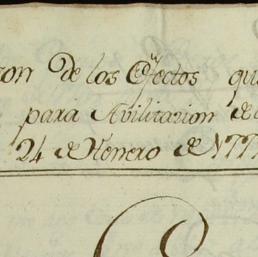 on De los Efectos qu
para Avilitazion de
24 de Henero de 177